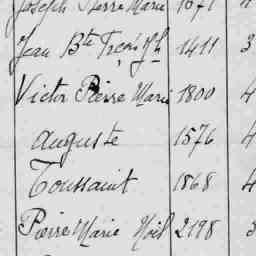 Joseph Pierre Marie 1671 4
Jean Bte Franç Jh 1411 3
Victor Pierre Marie 1800 4
Auguste 1576 4
Toussaint 1868 4
Pierre Marie Noël 2198 3